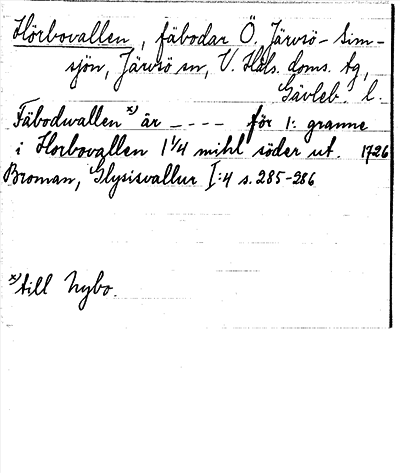 Hörbovallen, fäbodar Ö. Järvsö-Sim-
sjön, Järvsö sn, V. Häls. doms. tg,
Gävleb. l.
Fäbodwallen x) är – – – – för 1: granne
i Horbovallen 1 1/4 mihl söder ut. 1726
Broman, Glysisvallur I:4 s. 285-286
x) till Nybo.